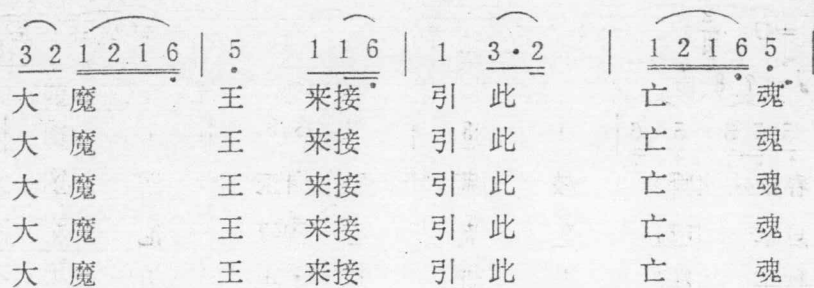 3 2 1 2 1 6 | 5 1 1 6 | 1 3 · 2 | 1 2 1 6 5 |
大 魔 王 来接 引 此 亡 魂
大 魔 王 来接 引 此 亡 魂
大 魔 王 来接 引 此 亡 魂
大 魔 王 来接 引 此 亡 魂
大 魔 王 来接 引 此 亡 魂